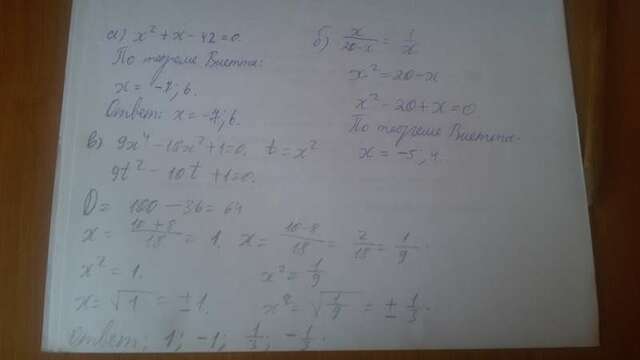 а) x² + x - 42 = 0.
По теореме Виетта:
x = -7; 6.
Ответ: x = -7; 6.
б) x/(20-x) = 1/x.
x² = 20 - x
x² - 20 + x = 0
По теореме Виетта.
x = -5; 4.
в) 9x⁴ - 10x² + 1 = 0. t = x²
9t² - 10t + 1 = 0.
D = 100 - 36 = 64
x = (10+8)/18 = 1. x = (10-8)/18 = 2/18 = 1/9.
x² = 1. x² = 1/9
x = √1 = ±1. x² = √(1/9) = ± 1/3.
Ответ: 1; -1; 1/3; -1/3.